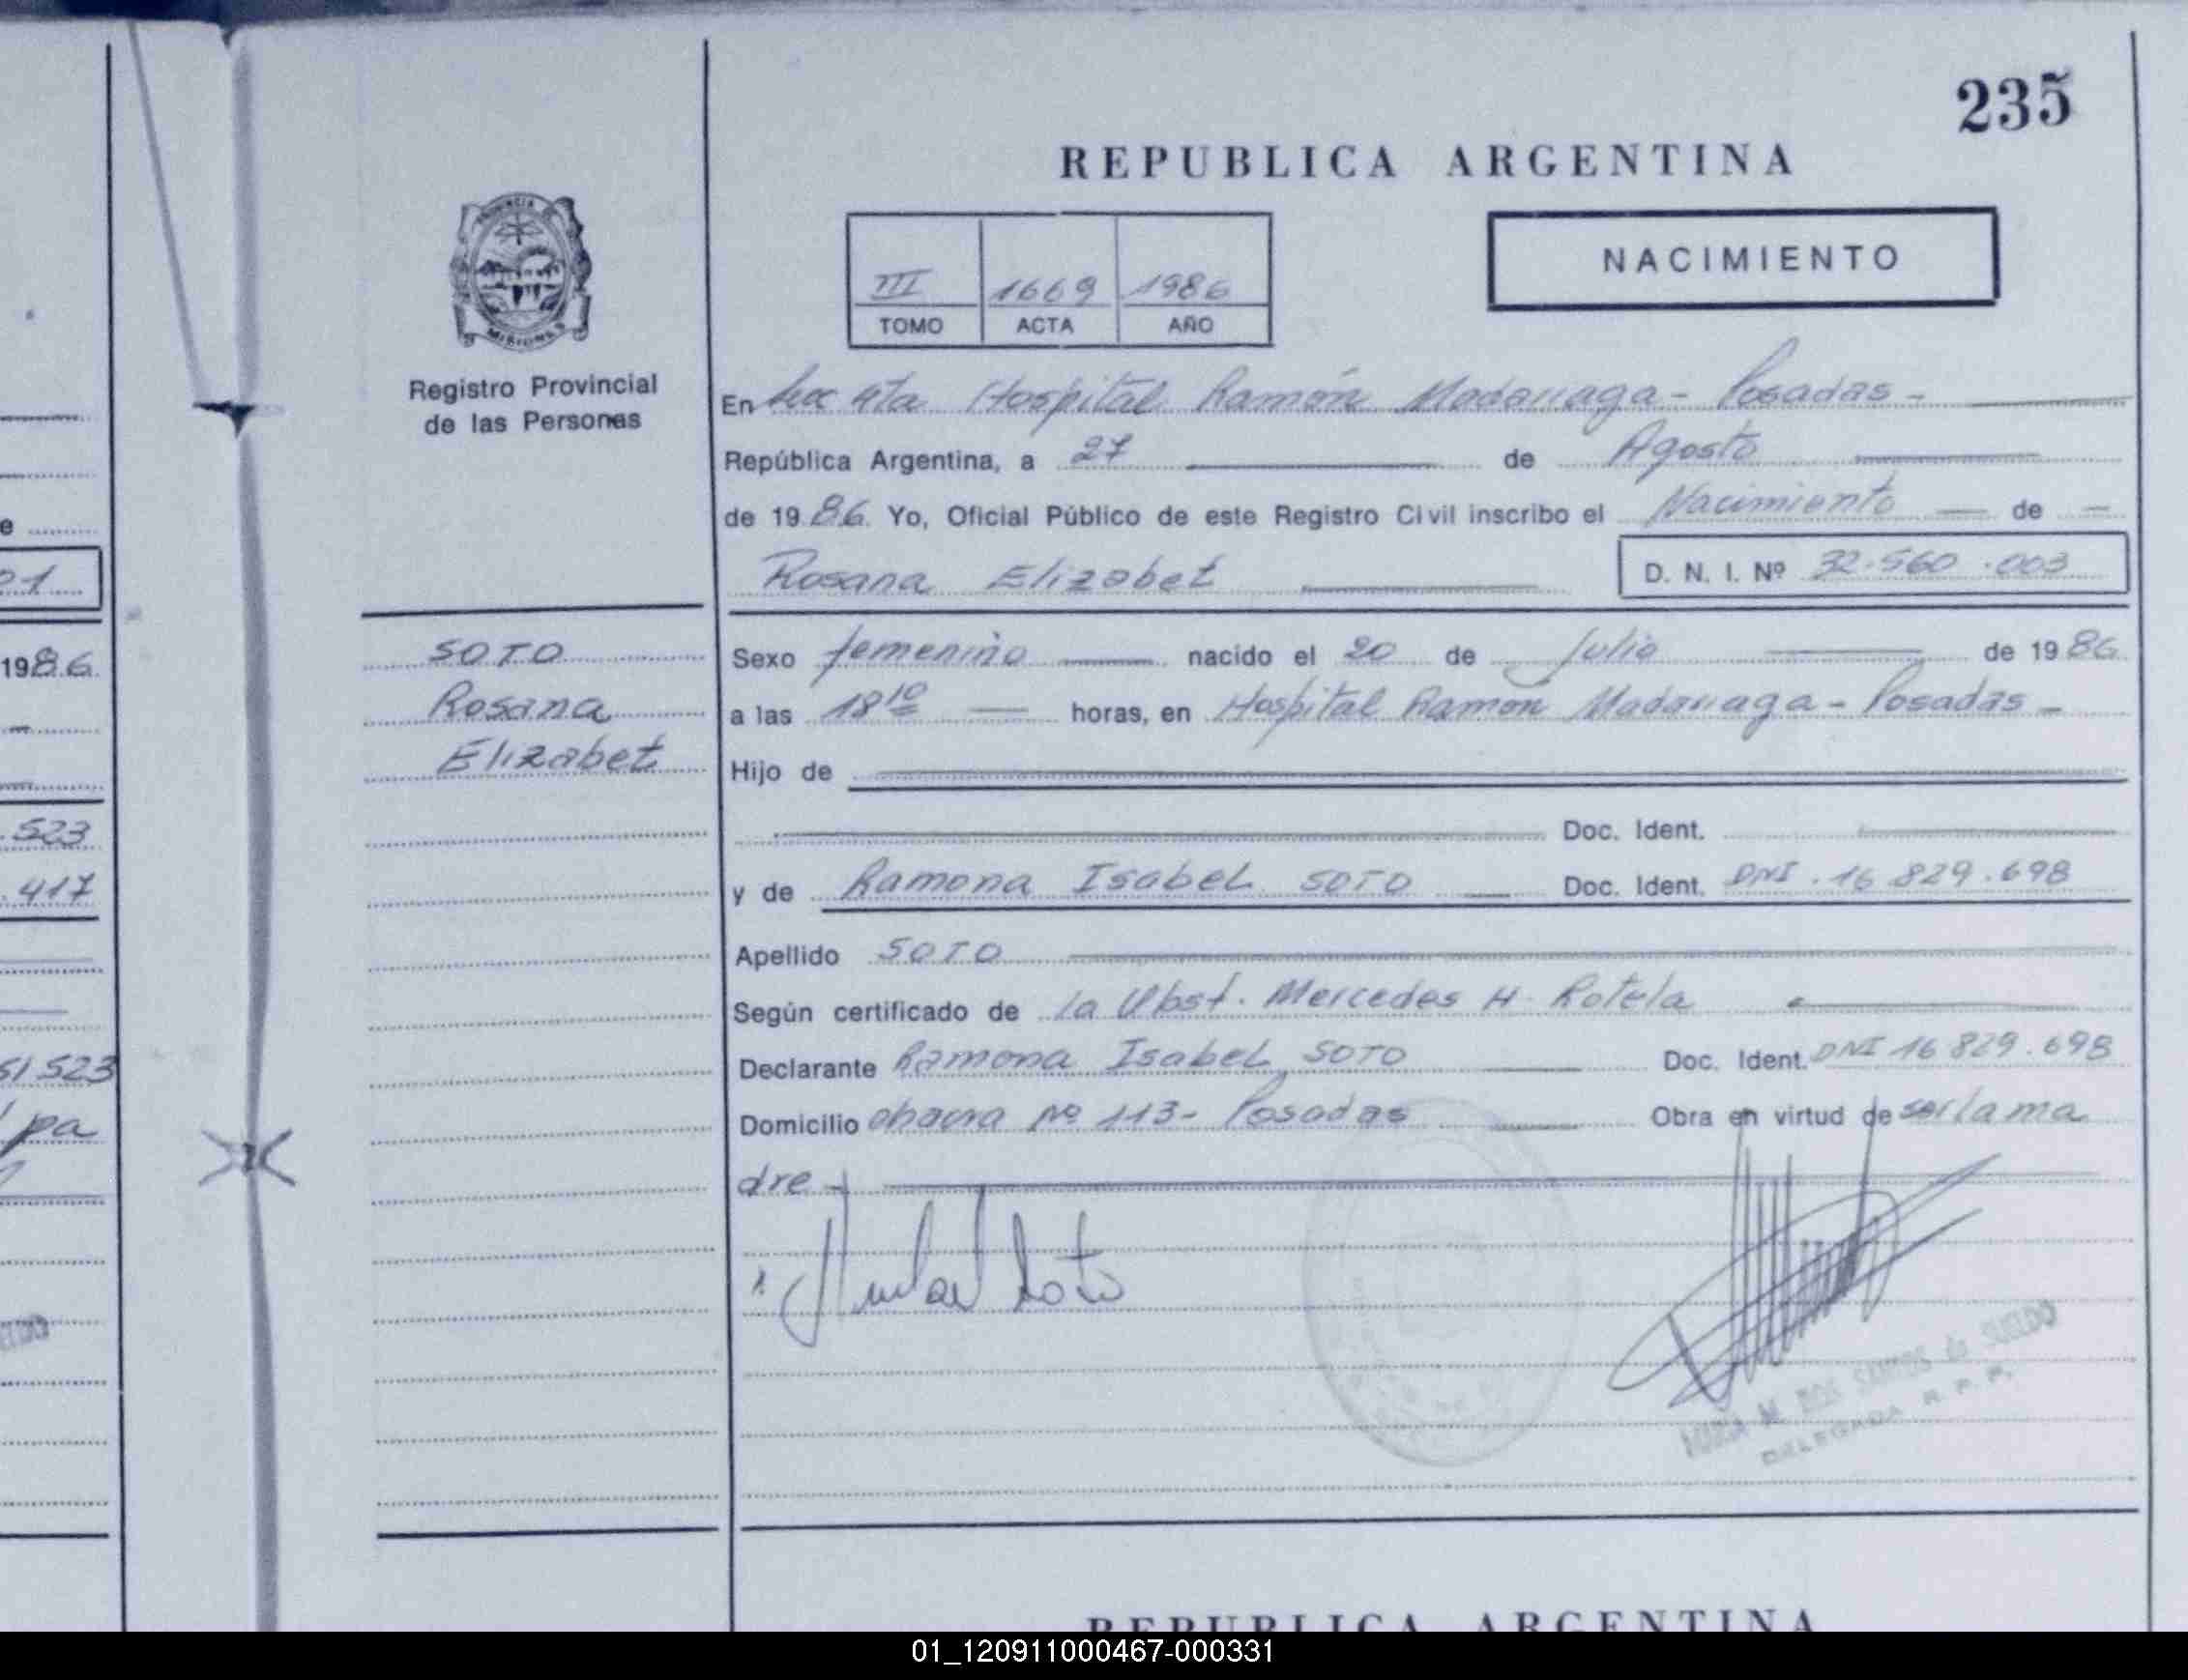 235
REPUBLICA ARGENTINA
NACIMIENTO
III 1669 1986
TOMO ACTA AÑO
PROVINCIA DE
MISIONES
Registro Provincial
de las Personas
En 4ta Hospital Ramón Madariaga - Posadas -
República Argentina, a 27 de Agosto
de 1986. Yo, Oficial Público de este Registro Civil inscribo el Nacimiento de
Rosana Elizabet D. N. I. Nº 32.560.003
SOTO
Rosana
Elizabet
Sexo femenino nacido el 20 de Julio de 1986
a las 18 10 horas, en Hospital Ramón Madariaga - Posadas -
Hijo de
Doc. Ident.
y de Ramona Isabel SOTO Doc. Ident. DNI. 16 829.698
Apellido SOTO
Según certificado de la Obst. Mercedes H. Rotela
Declarante Ramona Isabel SOTO Doc. Ident. DNI 16 829.698
Domicilio Nº 113 - Posadas Obra en virtud de ser la ma
dre -
Soto
M. DOS SANTOS de SUELDO
DELEGADA R. P. P.
REPUBLICA ARGENTINA
e
01
1986.
.523
.417
51.523
pa
01_120911000467-000331